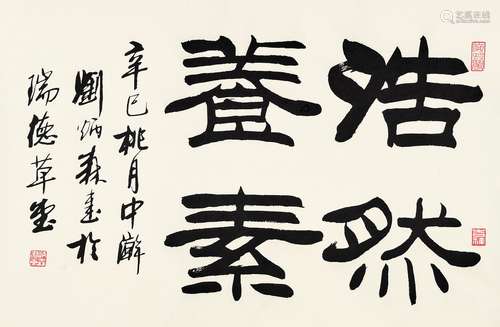 浩然
養素
辛巳桃月中澣
劉炳森書於
瑞德草堂